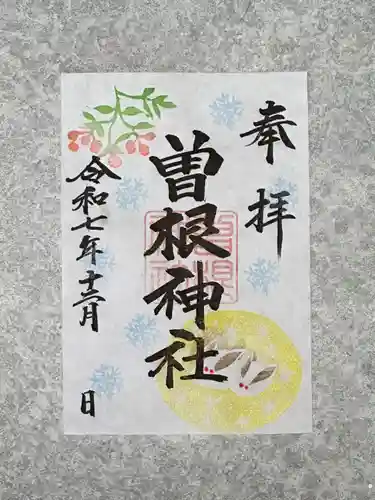 奉拝
曽根神社
令和七年十二月 日